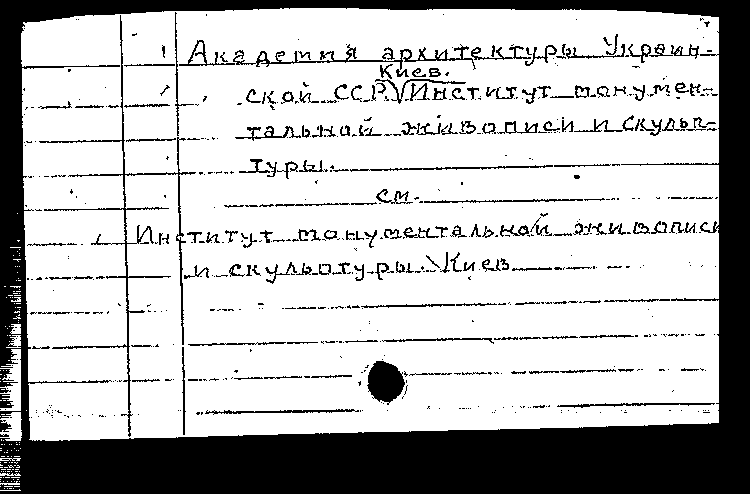 Академия архитектуры Украин-
Киев.
ской ССР. Институт монумен-
тальной живописи и скульп-
туры.
см.
Институт монументальной живописи
и скульптуры. Киев